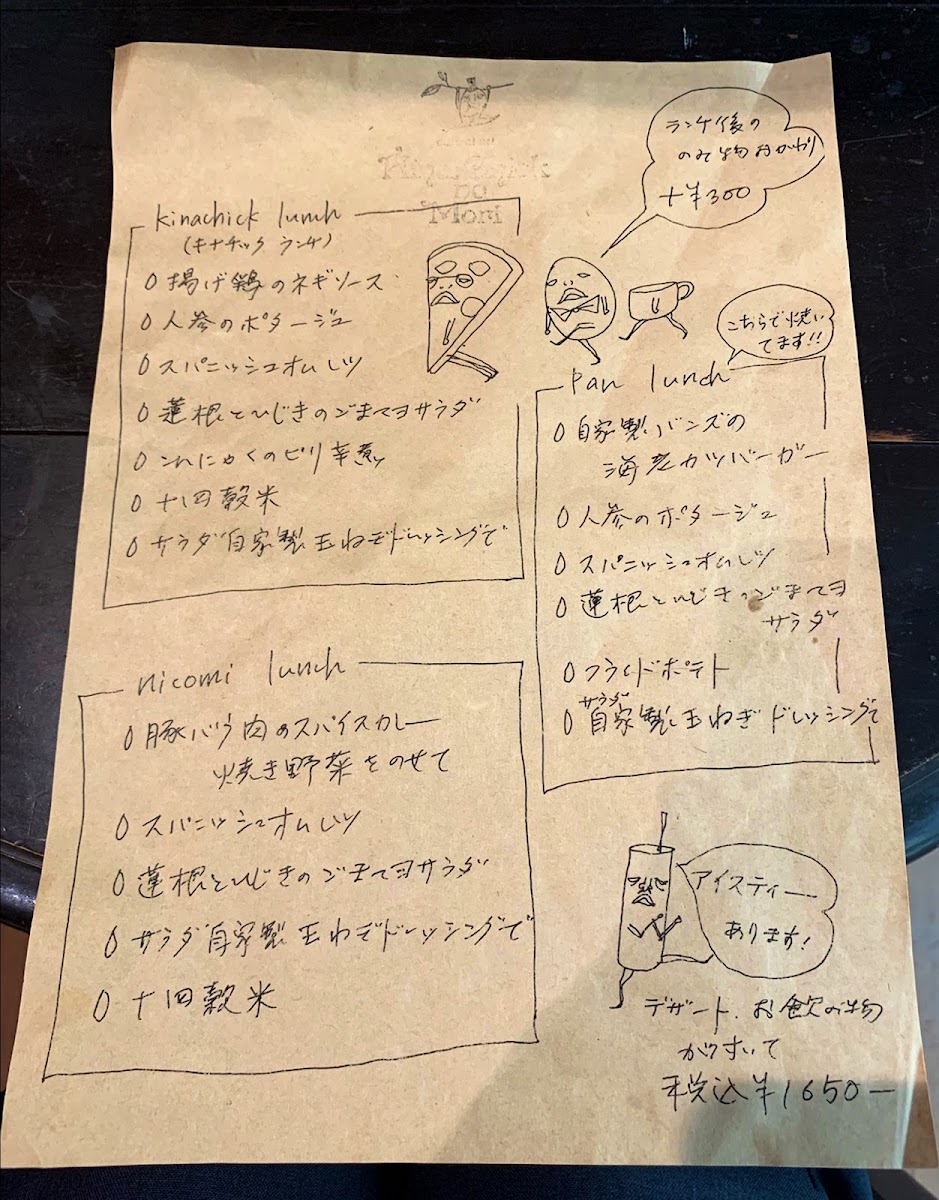 ランチ後の
のみ物おかわり
+¥300
Kinachick lunch
(キナチック ランチ)
0 揚げ鶏のネギソース
0 人参のポタージュ
0 スパニッシュオムレツ
0 蓮根とひじきのごまマヨサラダ
0 こんにゃくのピリ辛煮
0 十四穀米
0 サラダ自家製玉ねぎドレッシングで
こちらで焼い
てます!!
Pan lunch
0 自家製バンズの
海老カツバーガー
0 人参のポタージュ
0 スパニッシュオムレツ
0 蓮根とひじきのごまマヨ
サラダ
0 フライドポテト
サラダ
0 自家製玉ねぎドレッシングで
nicomi lunch
0 豚バラ肉のスパイスカレー
焼き野菜をのせて
0 スパニッシュオムレツ
0 蓮根とひじきのごまマヨサラダ
0 サラダ自家製玉ねぎドレッシングで
0 十四穀米
アイスティー
あります!
デザート、お飲み物
がついて
税込¥1650ー